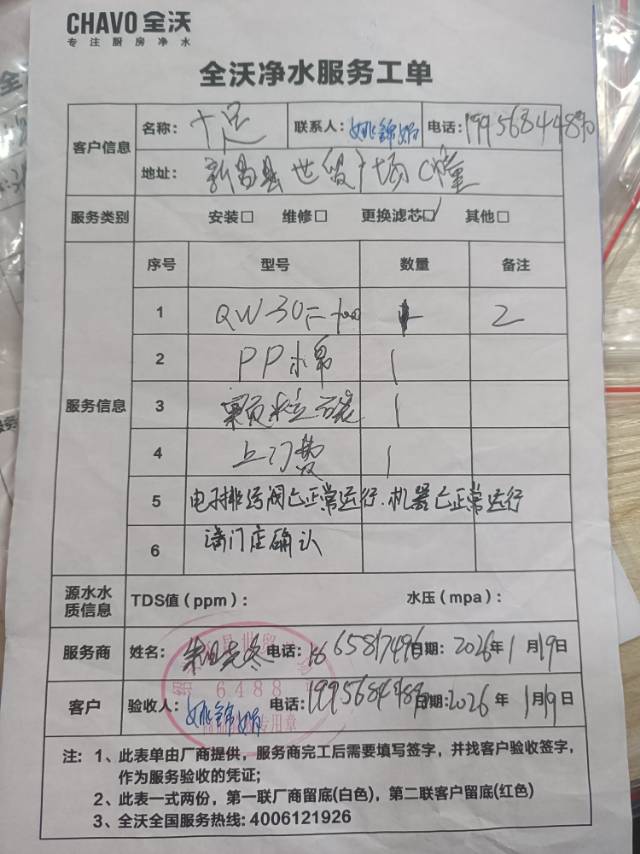 CHAVO 全沃
专注厨房净水
全沃净水服务工单
客户信息 名称：十足 联系人：姚锦娟 电话：
地址：新昌县世贸广场C幢
服务类别 安装□ 维修□ 更换滤芯☑ 其他□
服务信息 序号 型号 数量 备注
1 QW-30 2
2 PP棉 1
3 颗粒碳 1
4 上门费 1
5 电子排污阀已正常运行.机器已正常运行
6 请门店确认
源水水质信息 TDS值（ppm）： 水压（mpa）：
服务商 姓名： 电话：1665817496 日期：2026年1月19日
客户 验收人：姚锦娟 电话： 日期：2026年1月19日
6488
专用章
注：1、此表单由厂商提供，服务商完工后需要填写签字，并找客户验收签字，
作为服务验收的凭证；
2、此表一式两份，第一联厂商留底(白色)，第二联客户留底(红色)
3、全沃全国服务热线：4006121926